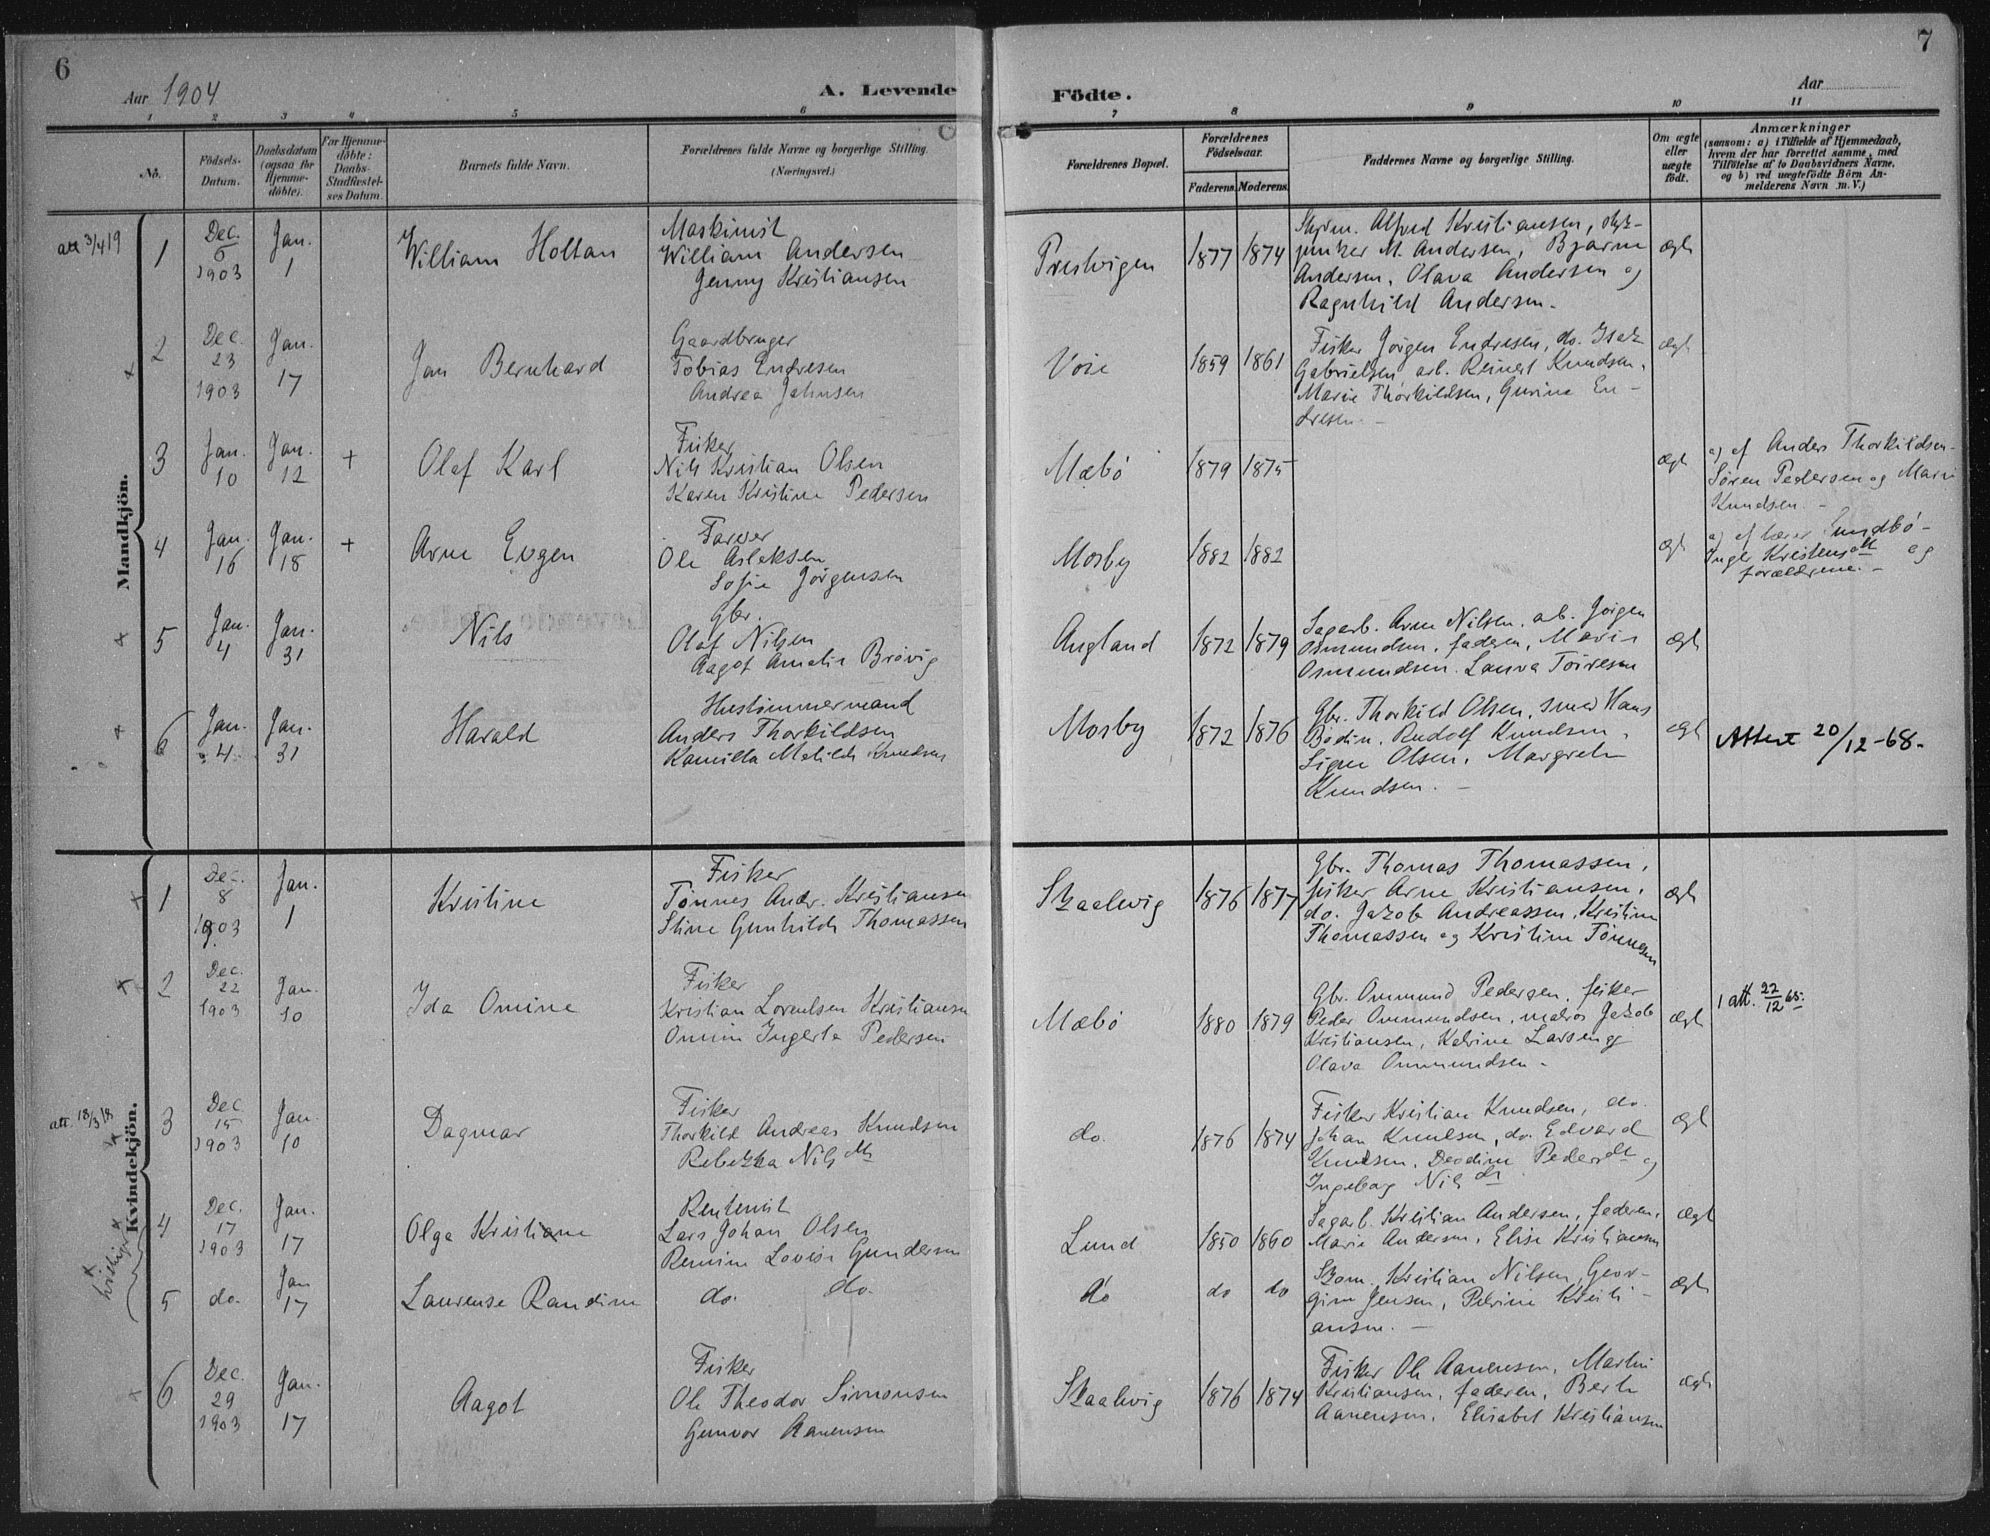 6
Aar 1904
A. Levende
Födte.
Aar
7
1 2 3 4 5 6 7 8 9 10 11
No.
Födsels-Datum.
Daabsdatum (ogsaa för Hjemme-döbte).
For Hjemme-döbte: Daabs-Stadfæstel-ses Datum.
Barnets fulde Navn.
Forældrenes fulde Navne og borgerlige Stilling.
(Næringsvei.)
Forældrenes Bopæl.
Forældrenes Födselsaar.
Faderens. Moderens.
Faddernes Navne og borgerlige Stilling.
Om ægte eller uægte födt.
Anmærkninger
(saasom: a) i Tilfælde af Hjemmedaab,
hvem der har forrettet samme, med
Tilföielse af to Daabsvidners Navne,
og b) ved uægtefödte Börn An-
melderens Navn m. V.)
Mandkjön.
att 3/4 19
1
Dec. 6 1903
Jan. 1
William Holtan
Maskinist
William Andersen
Jenny Kristiansen
Prestvigen
1877 1874
Alfred Kristiansen,
M. Andersen, Bjarne
Andersen, Olava Andersen og
Ragnhild Andersen.
ægt
2
Dec. 23 1903
Jan. 17
Jan Bernhard
Gaardbruger
Tobias Endresen
Andrea Jahnsen
Voie
1859 1861
Fisker Jørgen Endresen, do. Isak
Gabrielsen, arb. Reinert Knudsen,
Marie Thorkildsen, Gurine En-
dresen. -
ægt
3
Jan. 10
Jan. 12
+
Olaf Karl
Fisker
Nils Kristian Olsen
Karen Kristine Pedersen
Mæbö
1879 1875
ægt
a) af Anders Thorkildsen-
Søren Pedersen og Marie
Knudsen. -
4
Jan. 16
Jan. 18
+
Arne Eugen
Farver
Ole Aslaksen
Sofie Jørgensen
Mosby
1882 1882
ægt
a) af lærer Sundbö-
Inger Kristensdtt og
forældrene. -
5
Jan. 4
Jan. 31
Nils
Gbr.
Olaf Nilsen
Aagot Amalie Brövig
Augland
1872 1879
Sagarb. Arne Nilsen, arb. Jörgen
Osmundsen, faderen, Marie
Osmundsen. Laura Toresen
ægt
6
Jan. 4.
Jan. 31
Harald
Hustömmermand
Anders Thorkildsen
Kamilla Matilde Knudsen
Mosby
1872 1876
Gbr. Thorkild Olsen, smed Hans
Bodin, Rudolf Knudsen,
Signe Olsen, Margrete
Knudsen. -
ægt
Attest 20/12-68.
Kvindekjön.
1
Dec. 8 1903
Jan. 1
Kristine
Fisker
Tönnes Andr. Kristiansen
Stine Gunhilde Thomassen
Skaalevig
1876 1877
Gbr. Thomas Thomassen,
fisker Arne Kristiansen,
do. Jakob Andreassen, Kristine
Thomassen og Kristine Tönnesen
ægt
2
Dec. 22 1903
Jan. 10
Ida Omine
Fisker
Kristian Lorentsen Kristiansen
Omine Ingerte Pedersen
Mæbö
1880 1879
Gbr. Ommund Pedersen, fisker
Peder Ommundsen, matros Jakob
Kristiansen, Katrine Larsen og
Olava Ommundsen -
ægt
1 att. 22/12 65.
att. 18/3 18
3
Dec 15 1903
Jan. 10
Dagmar
Fisker
Thorkild Andreas Knudsen
Rebekka Nilsdtt
do.
1876 1874
Fisker Kristian Knudsen, do.
Johan Knudsen, do. Edvard
Knudsen, Deodine Pedersdtt og
Ingebor Nilsdtt
ægt
4
Dec. 17 1903
Jan. 17
Olga Kristiane
Rentenist
Lars Johan Olsen
Remine Lovise Gundersen
Lund
1850 1860
Sagarb. Kristian Andersen, faderen,
Marie Andersen, Elise Kristiansen
ægt
5
do.
Jan 17
Laurense Randine
do. do.
do
do do
Skom. Kristian Nilsen, Geor-
gine Jensen, Petrine Kristi-
ansen. -
ægt
6
Dec. 29 1903
Jan. 17
Aagot
Fisker
Ole Theodor Simonsen
Gunvor Aanensen
Skaalevig
1876 1874
Fisker Ole Aanensen, Martin
Kristiansen, faderen, Berte
Aanensen, Elisabet Kristiansen
ægt